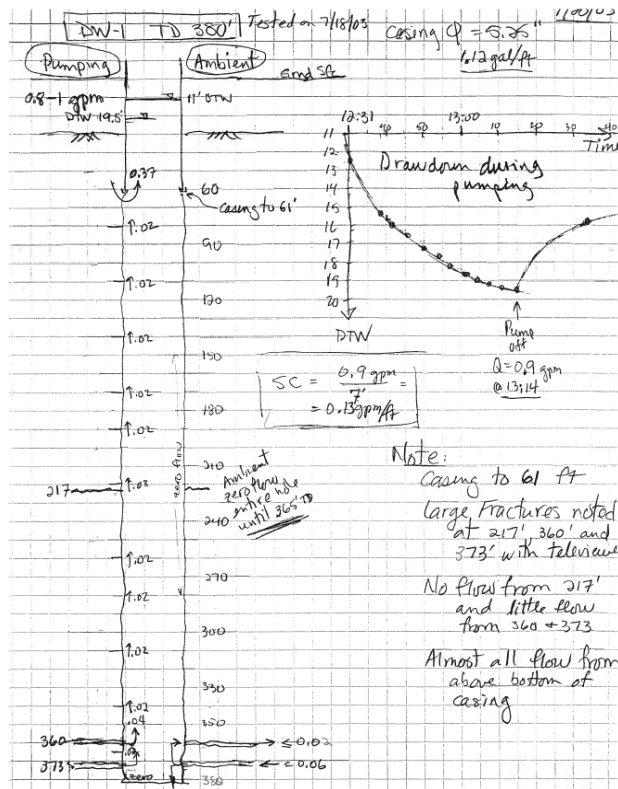 DW-1 TD 380' Tested on 7/18/03
Casing φ = 5.25"
1.12 gal/ft
Pumping
Ambient
Gnd Sfc
0.8-1 gpm
11' DTW
DTW 19.5'
0.37
60
Casing to 61'
↑.02
90
↑.02
120
↑.02
150
↑.02
180
↑.02
210
217
↑.02
zero flow
Ambient
zero flow
entire hole
until 365' TD
240
↑.02
270
↑.02
300
↑.02
330
↑.02
.04
350
360
≤0.02
373
≤0.06
zero
380
12:31
40
50
13:00
10
20
30
40
Time
11
12
13
14
15
16
17
18
19
20
DTW
Drawdown during
pumping
Pump
off
Q=0.9 gpm
@ 13:14
SC = 0.9 gpm / 7' =
= 0.13 gpm/ft
Note:
Casing to 61 ft
Large Fractures noted
at 217', 360' and
373' with televiewe
No flow from 217'
and little flow
from 360 + 373
Almost all flow from
above bottom of
casing